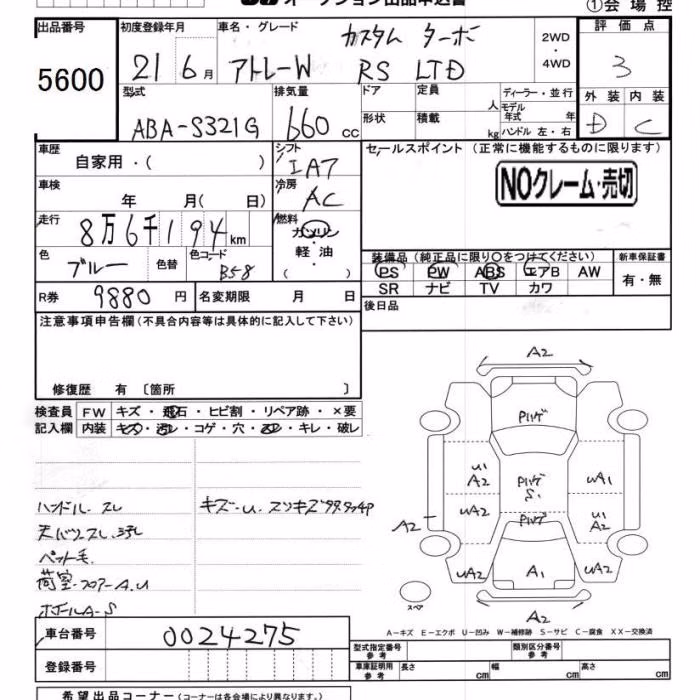 オークション出品申込書
①会場控
出品番号
5600
初度登録年月
21 6月
車名・グレード
カスタム ターボ
アトレーW RS LTD
2WD
・
4WD
評価点
3
型式
ABA-S321G
排気量
660cc
ドア
定員
人
形状
積載
kg
ディーラー・並行
モデル年式 年
ハンドル 左・右
外装 内装
D C
車歴
自家用・( )
シフト
IA7
セールスポイント(正常に機能するものに限ります)
NOクレーム・売切
車検
年 月( 日)
冷房
AC
走行
8万6千194km
燃料
ガソリン
・
軽油
・
( )
色
ブルー
色替
色コード
B58
装備品(純正品に限り○をつけてください)
PS PW ABS エアB AW
SR ナビ TV カワ
新車保証書
有・無
R券 9880円
名変期限 月 日
後日品
注意事項申告欄(不具合内容等は具体的に記入して下さい)
修復歴 有〔箇所 〕
検査員記入欄
FW キズ・飛石・ヒビ割・リペア跡・×要
内装 キズ・汚レ・コゲ・穴・スレ・キレ・破レ
ハンドル.スレ
キズ.U.スリキズ
天バリスレ.汚レ
ペット毛
荷室.フロアーA.U
A2
Pハゲ
U1
A2
UA1
Pハゲ
S1
UA2
U1
A2
A2
Pハゲ
UA2
A1
UA2
スペア
A2
A-キズ E-エクボ U-凹み W-補修跡 S-サビ C-腐食 XX-交換済
車台番号
0024275
登録番号
型式指定番号
参考
類別区分番号
参考
車庫証明用
参考
長さ cm
幅 cm
高さ cm
希望出品コーナー(コーナーは各会場により異なります。)